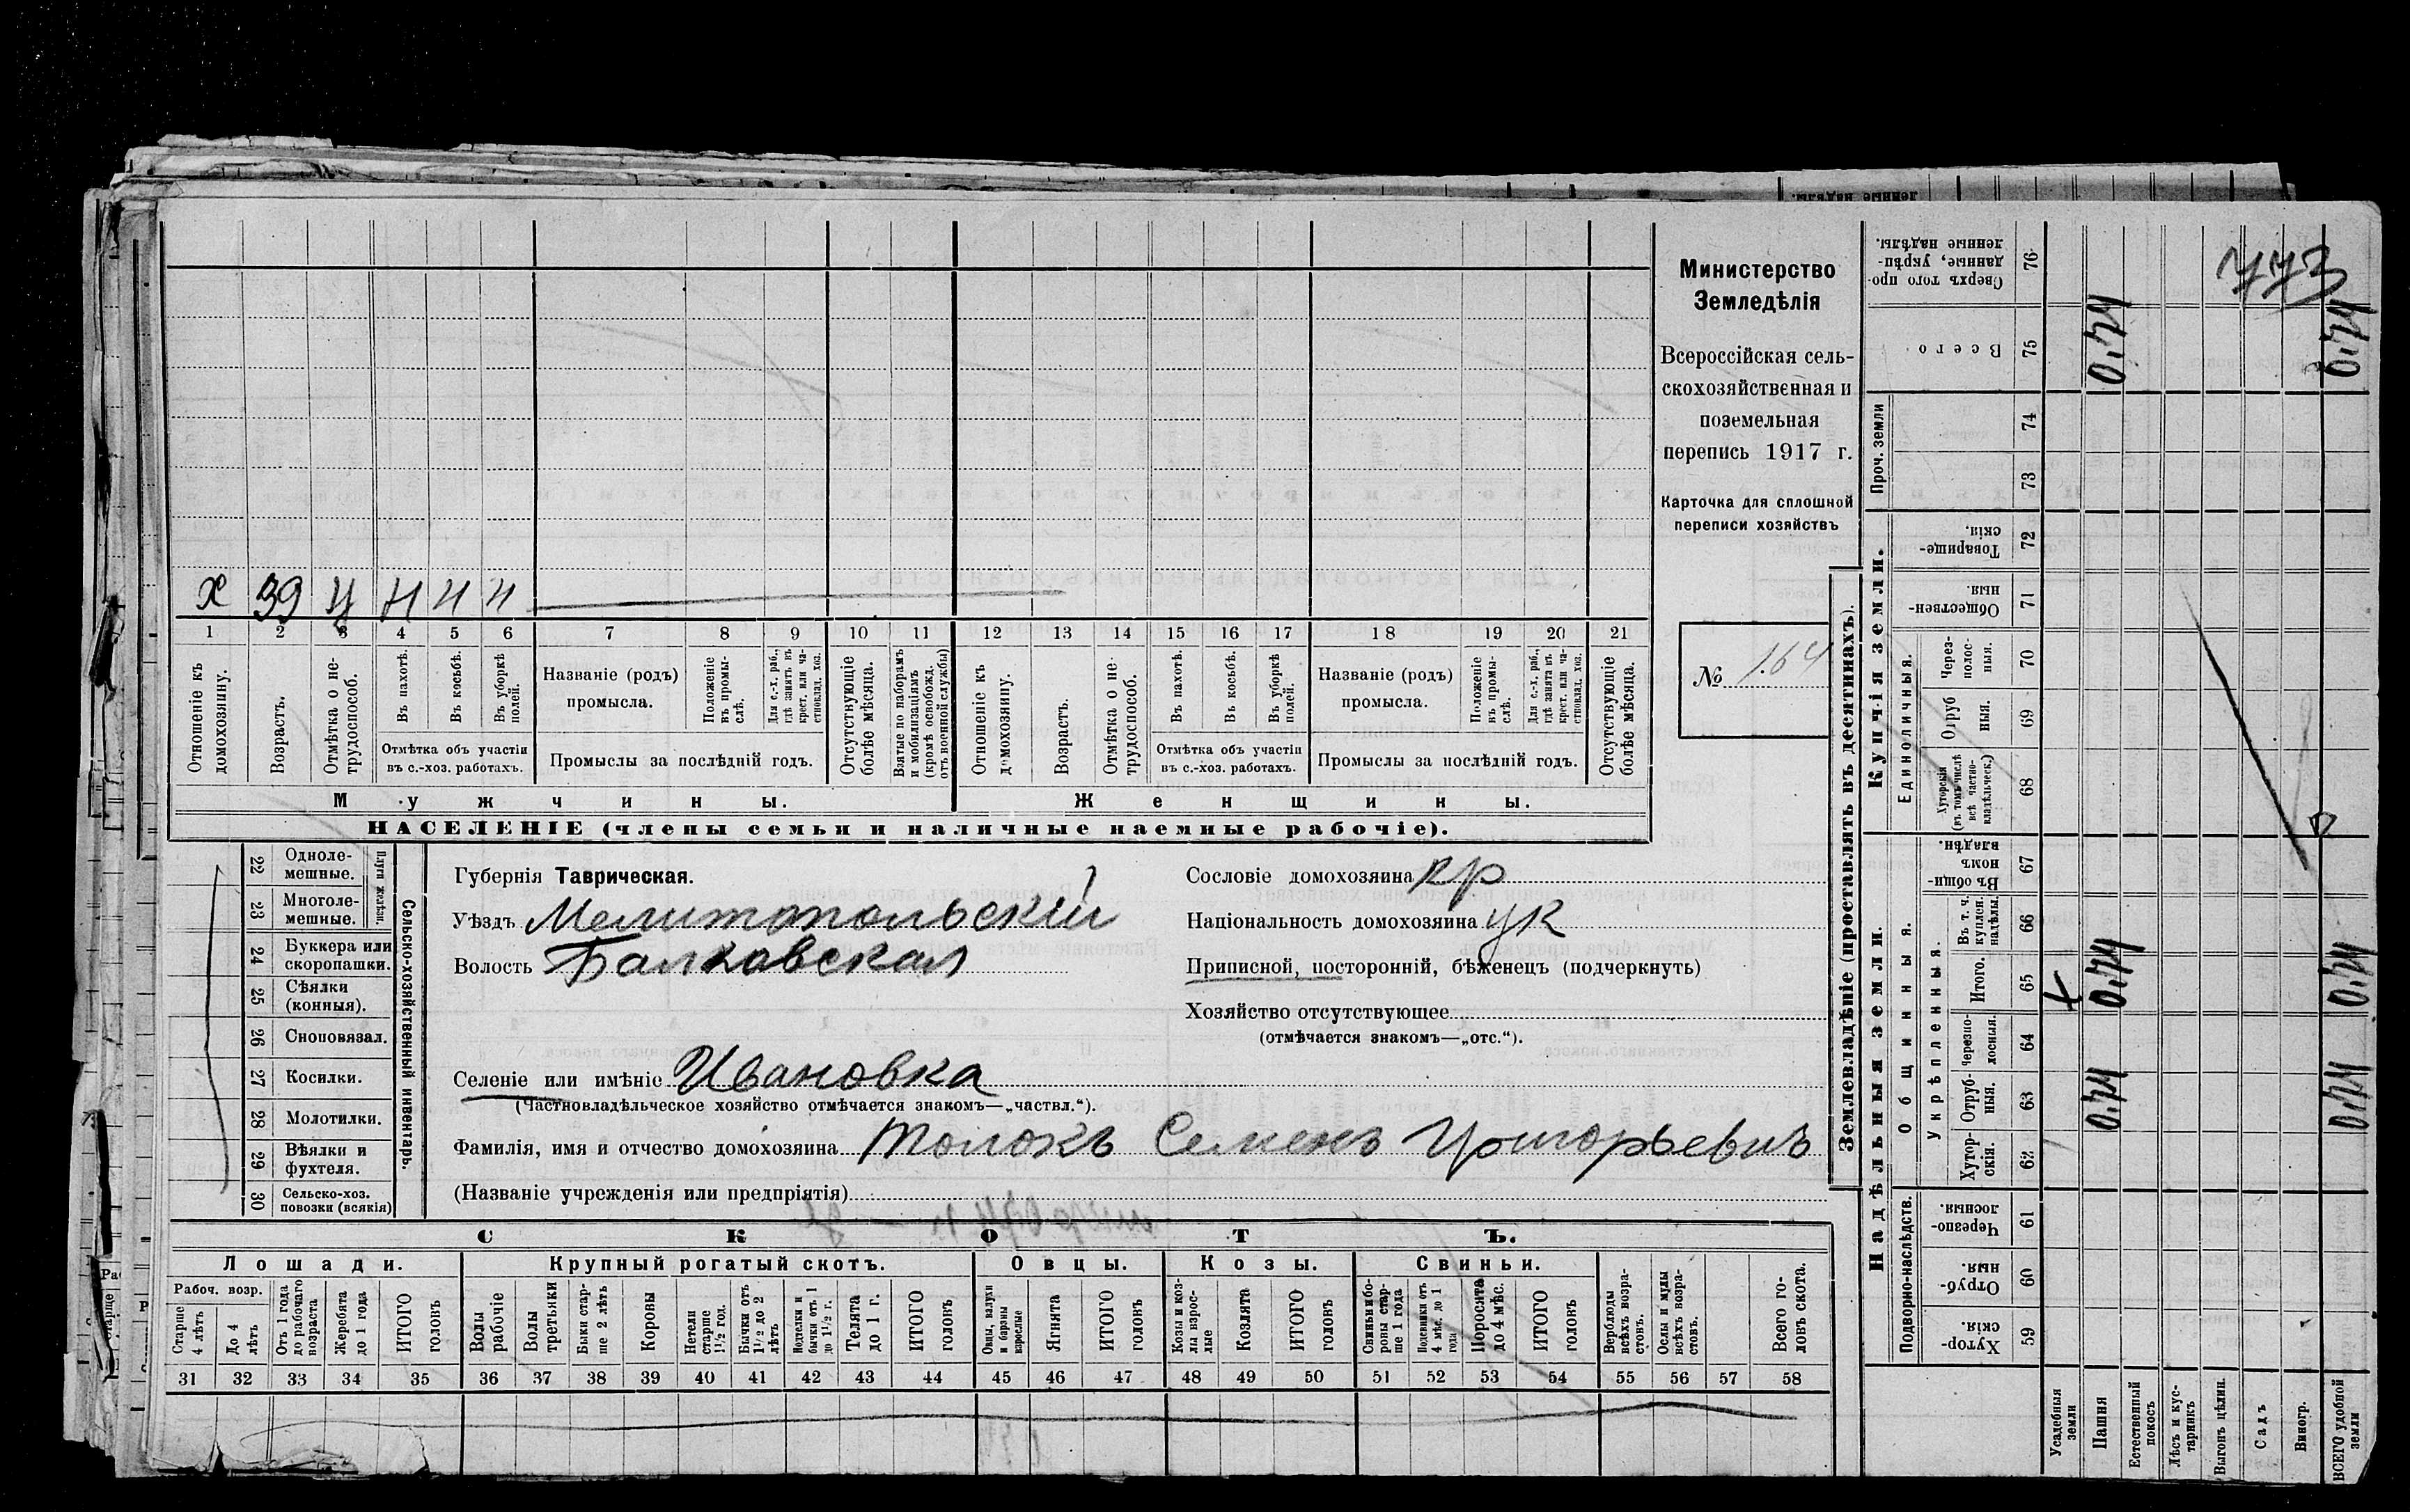 Министерство
Земледѣлія
Всероссійская сель-
скохозяйственная и
поземельная
перепись 1917 г.
Карточка для сплошной
переписи хозяйствъ
№ 164
773
х 39 Н Н Н
1 2 3 4 5 6 7 8 9 10 11 12 13 14 15 16 17 18 19 20 21
Отношеніе къ домохозяину.
Возрастъ.
Отмѣтка о не-трудоспособ.
Въ пахотѣ.
Въ косьбѣ.
Въ уборкѣ полей.
Отмѣтка объ участіи
въ с.-хоз. работахъ.
Названіе (родъ)
промысла.
Положеніе въ промы-слѣ.
Для с.-х. раб., гдѣ занятъ въ крест. или ча-стновлад. хоз.
Промыслы за послѣдній годъ.
Отсутствующіе болѣе мѣсяца.
Взятые по наборамъ и мобилизаціямъ (кромѣ освобожд. отъ военной службы)
Отношеніе къ домохозяину.
Возрастъ.
Отмѣтка о не-трудоспособ.
Въ пахотѣ.
Въ косьбѣ.
Въ уборкѣ полей.
Отмѣтка объ участіи
въ с.-хоз. работахъ.
Названіе (родъ)
промысла.
Положеніе въ промы-слѣ.
Для с.-х. раб., гдѣ занята въ крест. или ча-стновлад. хоз.
Промыслы за послѣдній годъ.
Отсутствующіе болѣе мѣсяца.
Мужчины.
Женщины.
НАСЕЛЕНІЕ (члены семьи и наличные наемные рабочіе).
Сельско-хозяйственный инвентарь.
22 Одноле-мешные.
23 Многоле-мешные.
24 Буккера или скоропашки.
25 Сѣялки (конныя).
26 Сноповязал.
27 Косилки.
28 Молотилки.
29 Вѣялки и фухтеля.
30 Сельско-хоз. повозки (всякія)
Губернія Таврическая.
Уѣздъ Мелитопольскій
Волость Балковская
Селеніе или имѣніе Ивановка
(Частновладѣльческое хозяйство отмѣчается знакомъ—„частвл.“).
Фамилія, имя и отчество домохозяина Толокъ Семенъ Григорьевичъ
(Названіе учрежденія или предпріятія)
Сословіе домохозяина кр
Національность домохозяина ук
Приписной, посторонній, бѣженецъ (подчеркнуть)
Хозяйство отсутствующее
(отмѣчается знакомъ—„отс.“).
СКОТЪ.
Лошади.
Крупный рогатый скотъ.
Овцы.
Козы.
Свиньи.
Рабоч. возр.
Старше 4 лѣтъ
До 4 лѣтъ
Отъ 1 года до рабочаго возраста
Жеребята до 1 года
ИТОГО головъ
Волы рабочіе
Волы третьяки
Быки стар-ше 2 лѣтъ
Коровы
Нетели старше 1½ год.
Бычки отъ 1½ до 2 лѣтъ
Подтелки и бычки отъ 1 до 1½ г.
Телята до 1 г.
ИТОГО головъ
Овцы, валухи и бараны взрослые
Ягнята
ИТОГО головъ
Козы и коз-лы взрос-лые
Козлята
ИТОГО головъ
Свиньи и бо-ровы стар-ше 1 года
Подсвинки отъ 4 мѣс. до 1 года
Поросята до 4 мѣс.
ИТОГО головъ
Верблюды всѣхъ возра-стовъ.
Ослы и мулы всѣхъ возра-стовъ.
Всего го-ловъ скота.
31 32 33 34 35 36 37 38 39 40 41 42 43 44 45 46 47 48 49 50 51 52 53 54 55 56 57 58
Землевладѣніе (проставлять въ десятинахъ).
Купчія земли.
Надѣльныя земли.
Сверхъ того про-данные, укрѣп-ленные надѣлы. 76
Всего 75 0,74 0,74
Проч. земли 74
73
Товарище-скія. 72
Обществен-ныя. 71
Единоличныя.
Через-полос-ныя. 70
Отруб-ныя. 69
Хуторскія (въ томъ числѣ всѣ частно-владѣльческ.) 68
Общинныя.
Въ общи-номъ владѣн. 67
Укрѣпленныя.
Въ т. ч. куплен. надѣлы. 66
Итого. 65 0,74 0,74
Черезпо-лосныя. 64
Отруб-ныя. 63 0,74 0,74
Хутор-скія. 62
Подворно-наслѣдств.
Черезпо-лосныя. 61
Отруб-ныя. 60
Хутор-скія. 59
Усадебныя земли
Пашня
Естественный покосъ
Лѣсъ и кус-тарникъ
Выгонъ цѣлин.
Садъ
Виногр.
ВСЕГО удобной земли